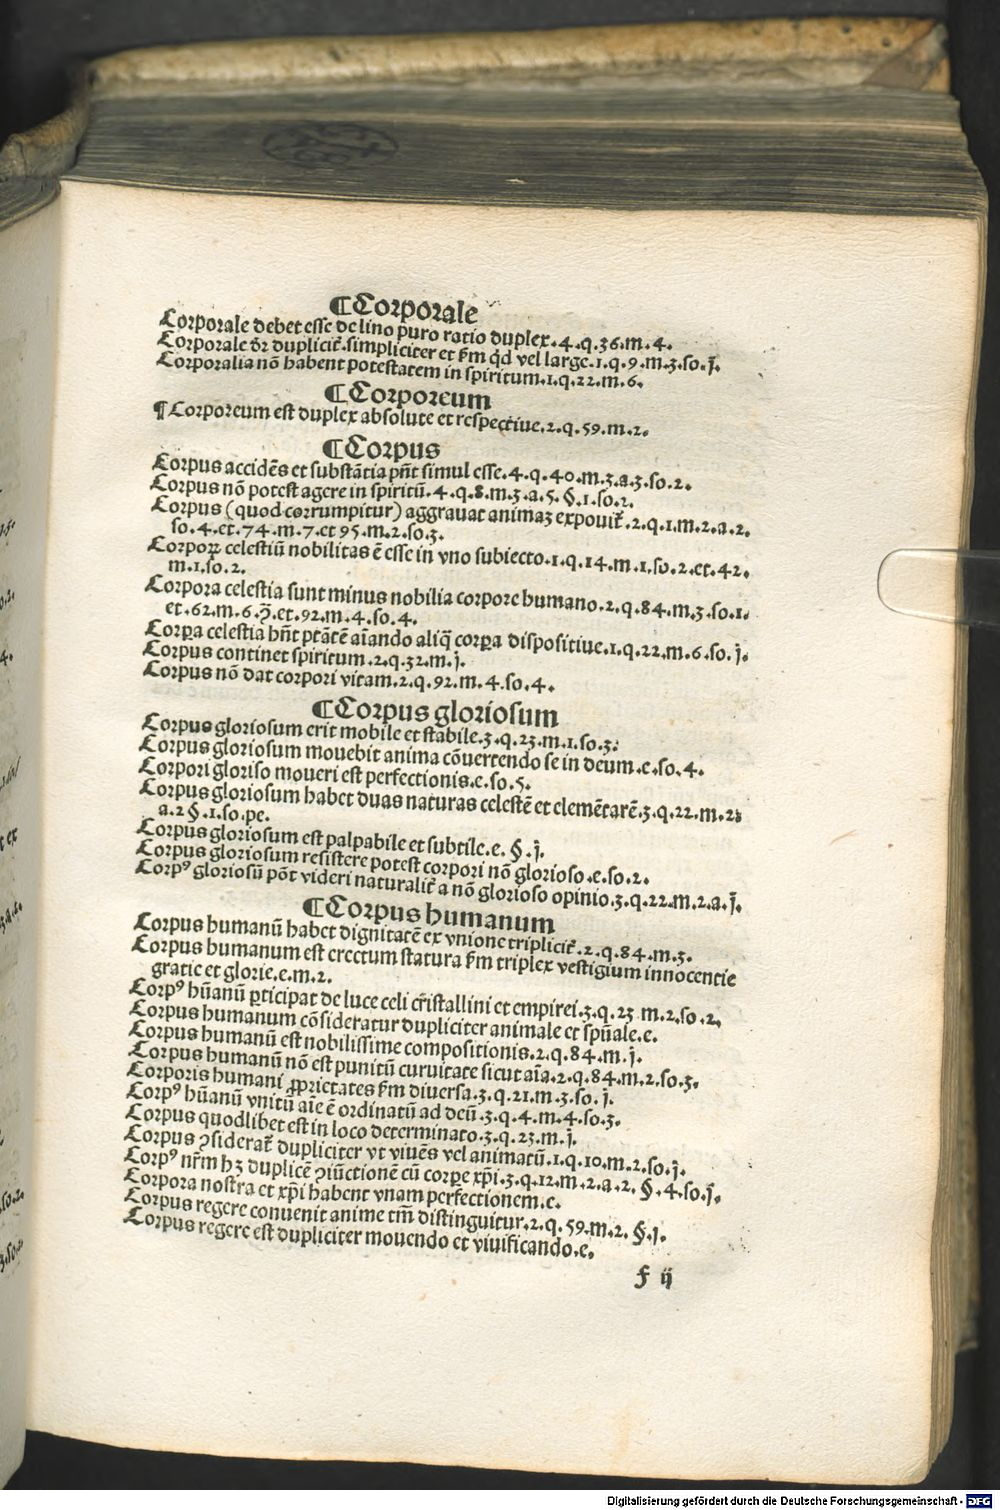 ¶Corporale
Corporale debet esse de lino puro ratio duplex.4.q.36.m.4.
Corporale dr̄ duplicit̄.simpliciter et ẜm qd̄ vel large.1.q.9.m.3.so.j.
Corporalia nō habent potestatem in spiritum.1.q.22.m.6.
¶Corporeum
¶Corporeum est duplex absolute et respectiue.2.q.59.m.2.
¶Corpus
Corpus accidēs et substātia pn̄t simul esse.4.q.40.m.3.a.3.so.2.
Corpus nō potest agere in spiritū.4.q.8.m.3.a.5.§.1.so.2.
Corpus (quod corrumpitur) aggrauat animaꝫ expouit̄.2.q.1.m.2.a.2.
so.4.et.74.m.7.et 95.m.2.so.3.
Corpoꝝ celestiū nobilitas ē esse in vno subiecto.1.q.14.m.1.so.2.et.42.
m.1.so.2.
Corpora celestia sunt minus nobilia corpore humano.2.q.84.m.3.so.1.
et.62.m.6.ꝯ̄.et.92.m.4.so.4.
Corꝑa celestia hn̄t ptātē aīando aliq̄ corꝑa dispositiue.1.q.22.m.6.so.j.
Corpus continet spiritum.2.q.32.m.j.
Corpus nō dat corpori vitam.2.q.92.m.4.so.4.
¶Corpus gloriosum
Corpus gloriosum erit mobile et stabile.3.q.23.m.1.so.3.
Corpus gloriosum mouebit anima cōuertendo se in deum.e.so.4.
Corpori gloriso moueri est perfectionis.e.so.5.
Corpus gloriosum habet duas naturas celestē et elemētarē.3.q.22.m.2.
a.2 §.1.so.pe.
Corpus gloriosum est palpabile et subtile.e.§.j.
Corpus gloriosum resistere potest corpori nō glorioso.e.so.2.
Corpꝰ gloriosū pōt videri naturalit̄ a nō glorioso opinio.3.q.22.m.2.a.j.
¶Corpus humanum
Corpus humanū habet dignitatē ex vnione triplicit̄.2.q.84.m.3.
Corpus humanum est erectum statura ẜm triplex vestigium innocentie
gratie et glorie.e.m.2.
Corpꝰ hūanū ꝑticipat de luce celi cristallini et empirei.3.q.23 m.2.so.2.
Corpus humanum cōsideratur dupliciter animale et spūale.e.
Corpus humanū est nobilissime compositionis.2.q.84.m.j.
Corpus humanū nō est punitū curuitate sicut aīa.2.q.84.m.2.so.3.
Corporis humani ꝓprietates ẜm diuersa.3.q.21.m.3.so.j.
Corpꝰ hūanū vnitū aīe ē ordinatū ad deū.3.q.4.m.4.so.3.
Corpus quodlibet est in loco determinato.3.q.23.m.j.
Corpus ꝯsiderat̄ dupliciter vt viuēs vel animatū.1.q.10.m.2.so.j.
Corpꝰ nr̄m hꝫ duplicē ꝯiūctionē cū corꝑe xp̄i.3.q.12.m.2.a.2.§.4.so.j.
Corpora nostra et xp̄i habent vnam perfectionem.e.
Corpus regere conuenit anime tm̄ distinguitur.2.q.59.m.2.§.j.
Corpus regere est dupliciter mouendo et viuificando.e.
f ij
Digitalisierung gefördert durch die Deutsche Forschungsgemeinschaft - DFG